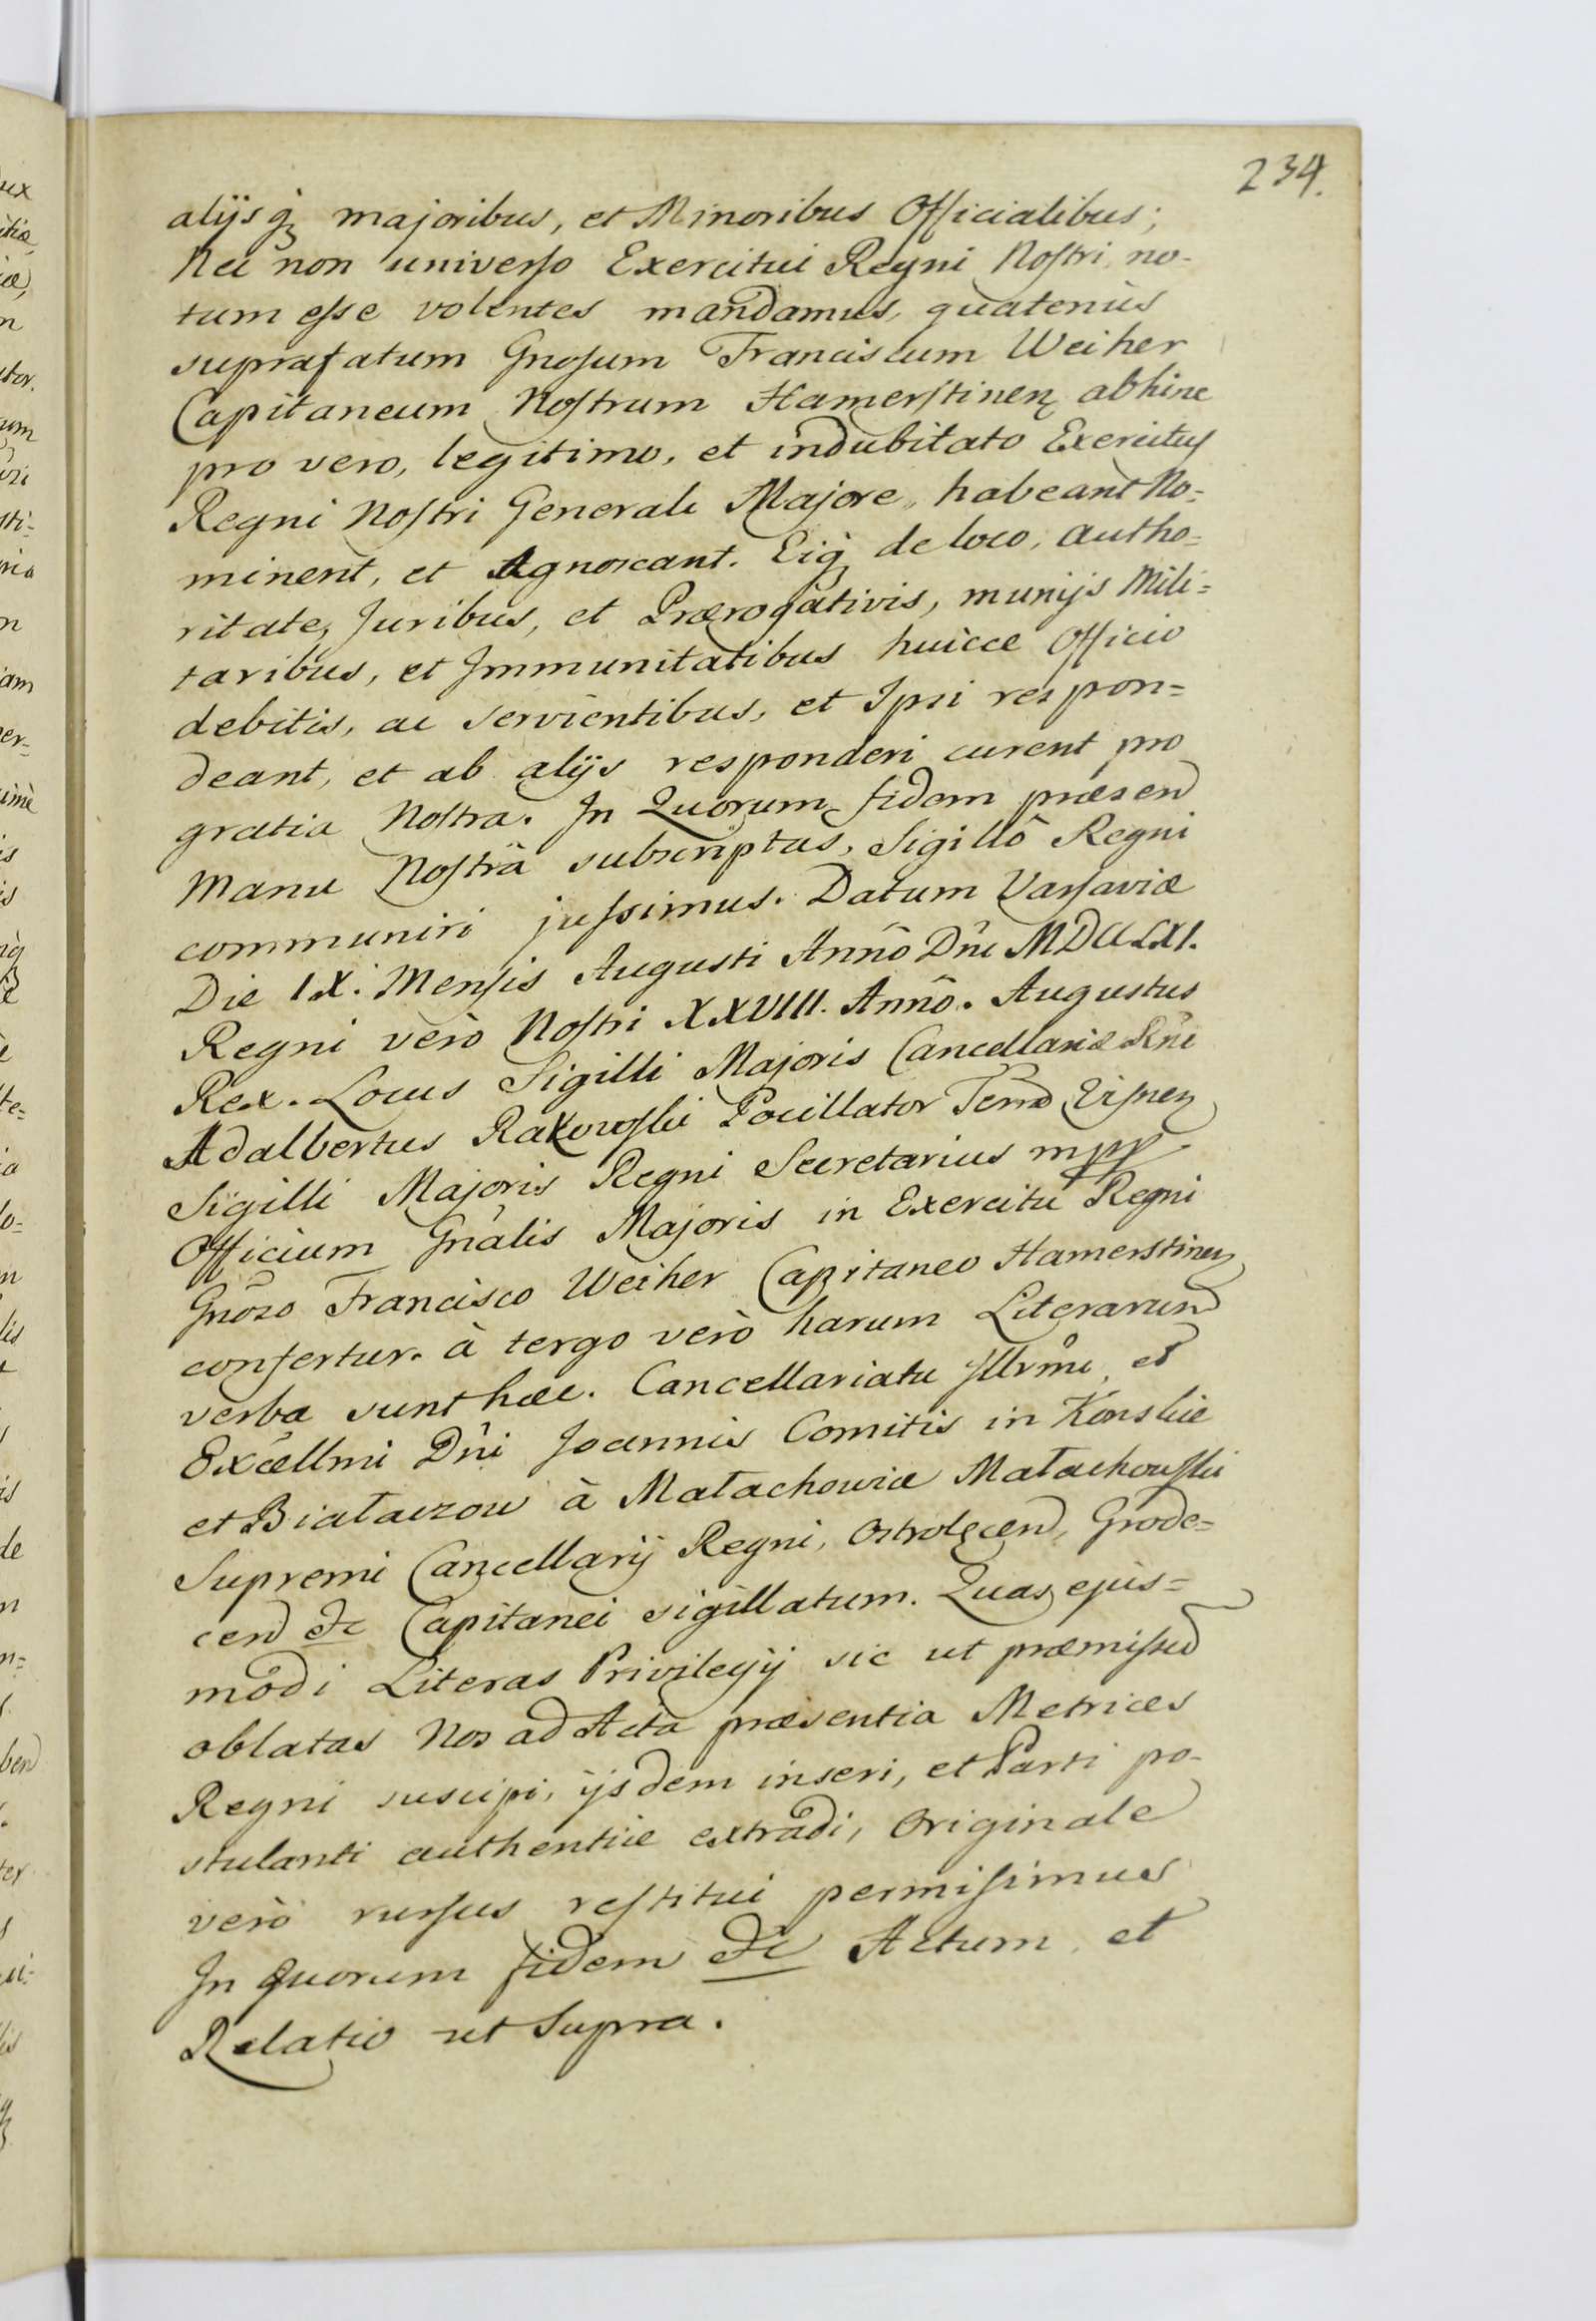 234.
alijsq; majoribus, et Minoribus Officialibus;
Nec non universo Exercitui Regni Nostri no-
tum esse volentes mandamus, quatenùs
suprafatum Gnosum Franciscum Weiher
Capitaneum Nostrum Hamerstinen abhinc
pro vero, legitimo, et indubitato Exercitus
Regni Nostri Generali Majore, habeant No=
minent, et Agnoscant. Eiq; de loco, autho=
ritate, Juribus, et Prærogativis, munijs Mili=
taribus, et Immunitatibus huicce Officio
debitis, ac servientibus, et Ipsi respon=
deant, et ab alijs responderi curent pro
gratia Nostra. In Quorum fidem præsen
Manu Nostrâ subscriptas, Sigillô Regni
communiri jussimus. Datum Varsaviæ
Die IX. Mensis Augusti Annô Dni MDCCLXI.
Regni verò Nostri XXVIII. Annô. Augustus
Rex. Locus Sigilli Majoris Cancellariæ Rni
Adalbertus Rakowski Pocillator Terræ
Sigilli Majoris Regni Secretarius mpp
Officium Gnalis Majoris in Exercitu Regni
Gnoso Francisco Weiher Capitaneo Hamerstinen
confertur. à tergo verò harum Literarum
verba sunt hæc. Cancellariatu Illrmi, et
Excellmi Dni Joannis Comitis in Konskie
et Białaczow à Małachowice Małachowski
Supremi Cancellarij Regni, Ostrolęcen, Grode=
cen &c Capitanei sigillatum. Quas ejus=
modi Literas Privilegij sic ut præmissu
oblatas Nos ad Acta præsentia Metrices
Regni suscipi, ijsdem inseri, et Parti po-
stulanti authentice extradi, Originale
verò rursus restitui permisimus
In quorum fidem &c Actum et
Relatio ut Supra.